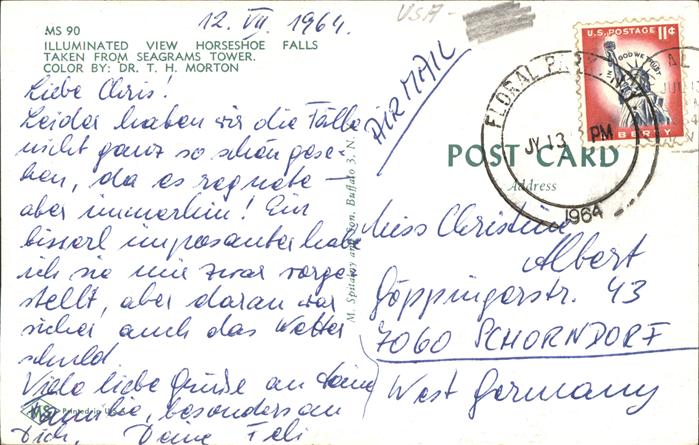 12. VII. 1964.
USA -
MS 90
ILLUMINATED VIEW HORSESHOE FALLS
TAKEN FROM SEAGRAMS TOWER.
COLOR BY: DR. T. H. MORTON
Liebe Chris!
Leider haben wir die Fälle
nicht ganz so schön gese-
hen, da es regnete -
aber immerhin! Ein
bisserl imposanter habe
ich sie mir zwar vorge-
stellt, aber daran war
sicher auch das Wetter
schuld
Viele liebe Grüße an Deine
Familie, besonders an
Dich, Deine Feli
MS Printed in U.S.A.
M. Spitalny and Son, Buffalo 3, N.
AIR MAIL
U.S. POSTAGE 11¢
IN GOD WE TRUST
LIBERTY
FLORAL PARK, N.Y.
JY 13 PM
1964
POST CARD
Address
Miss Christine
Albert
Göppingerstr. 43
7060 SCHORNDORF
West Germany